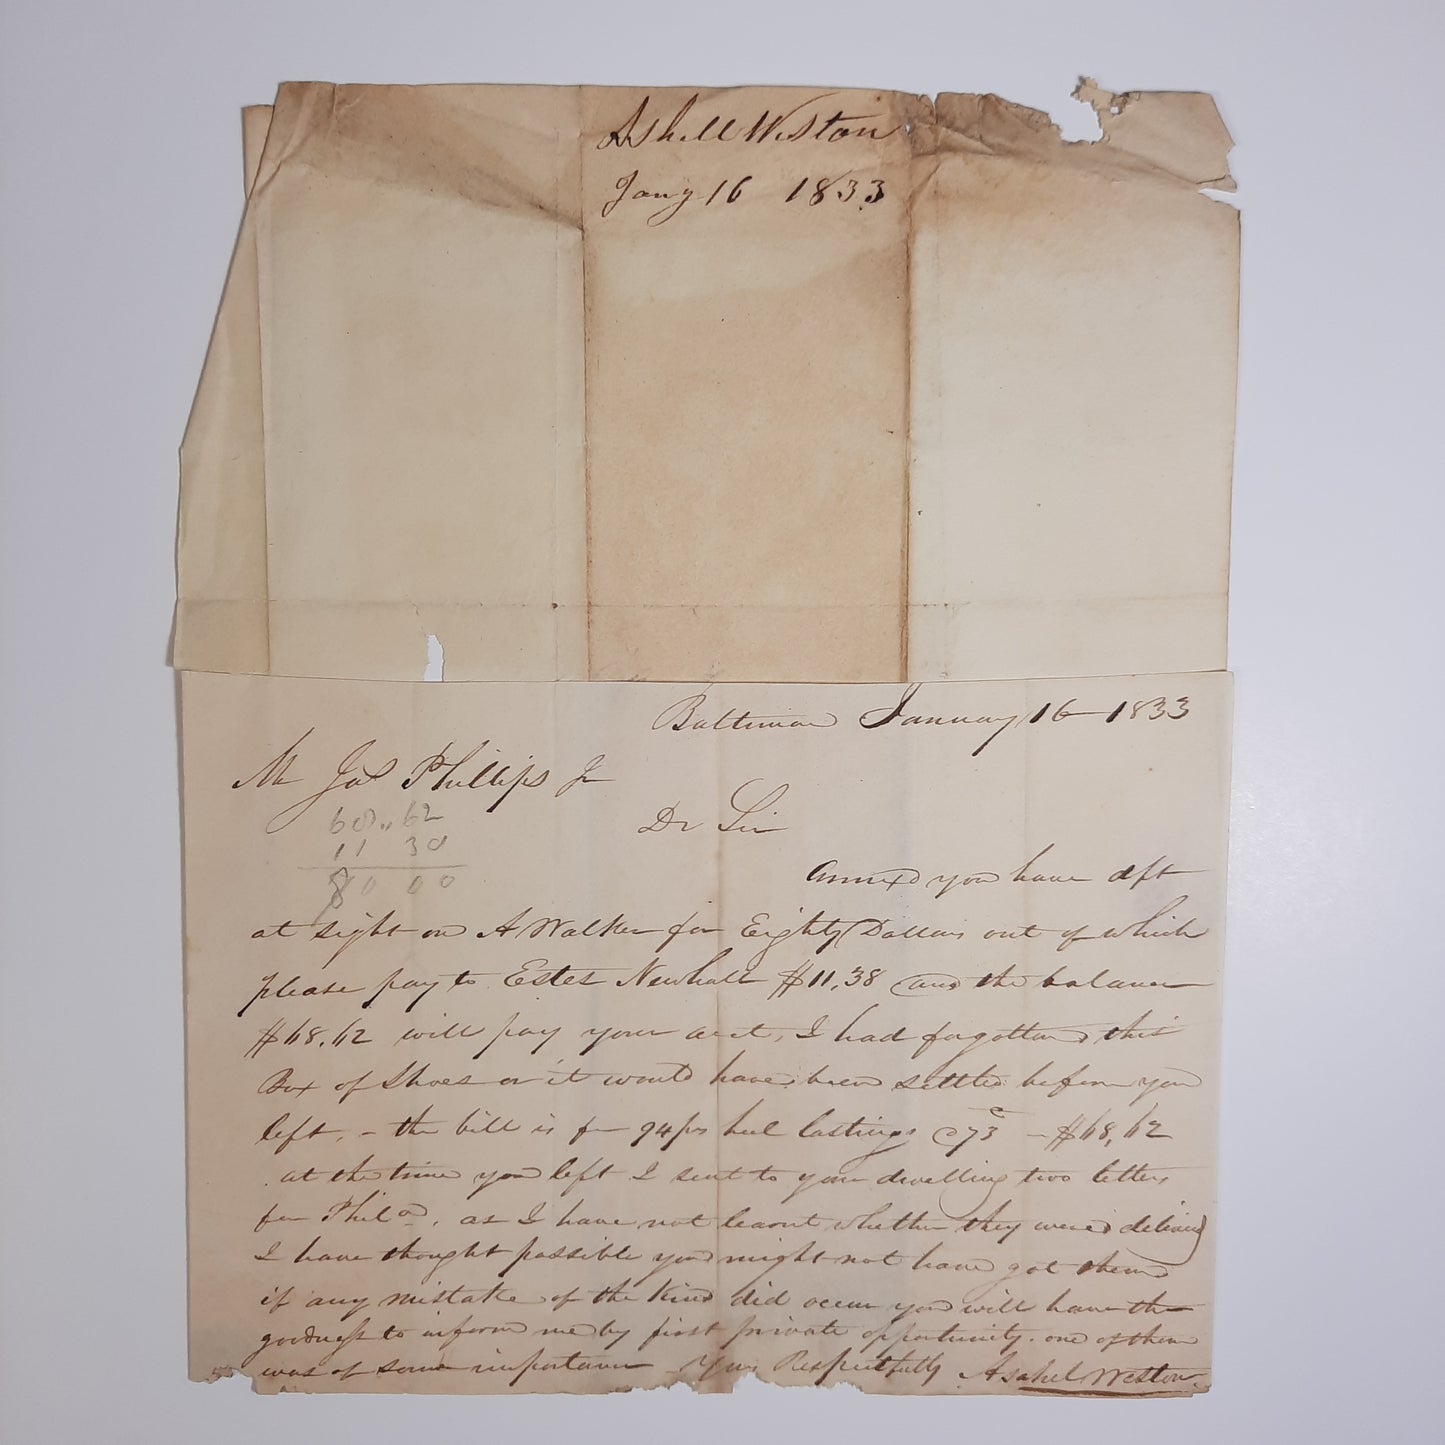 Ashell Weston
Jany 16 1833
Baltimore January 16 1833
Mr Jas Phillips Jr
68,, 62
11 38
80 00
Dr Sir
Annexd you have dft
at sight on A Walker for Eighty Dollars out of which
please pay to Estes Newhall $11,38 and the balance
$68,62 will pay your acct, I had forgotten this
Box of Shoes or it would have been settled before you
left, - the bill is for 94 prs heel lastings @ 73c - $68,62
at the time you left I sent to your dwelling two letters
for Phila, as I have not learnt whether they were delived
I have thought possible you might not have got them
if any mistake of the kind did occur you will have the
goodness to inform me by first private opportunity. one of them
was of some importance Yours Respectfully Asahel Weston